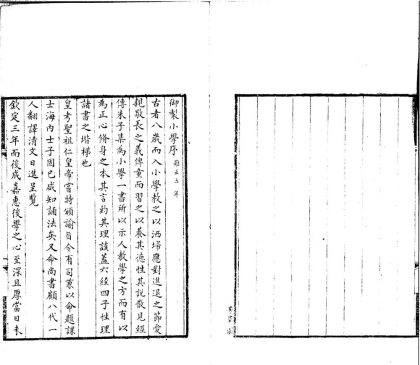 御製小學序 雍正五年
古者八歲而入小學教之以洒埽應對進退之節愛
親敬長之義俾童而習之以養其德性其說散見經
傳朱子集為小學一書所以示人教學之方而有以
為正心脩身之本其言約其理該蓋六經四子性理
諸書之堦梯也
皇考聖祖仁皇帝嘗特頒諭旨令有司業以命題課
士海內士子固已咸知誦法矣又命尚書顧八代一
人翻譯清文日進呈覽
欽定三年而後成嘉惠後學之心至深且厚當日未